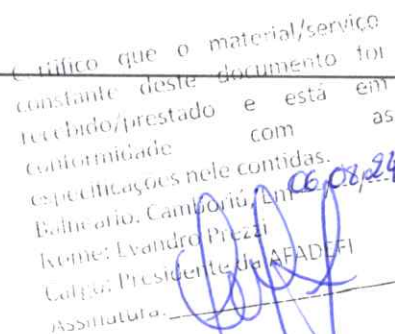 Certifico que o material/serviço
constante deste documento foi
recebido/prestado e está em
conformidade com as
especificações nele contidas.
Balneário. Camboriú, Em 06,08,24
Nome: Evandro Prezzi
Cargo: Presidente da AFADEFI
Assinatura: